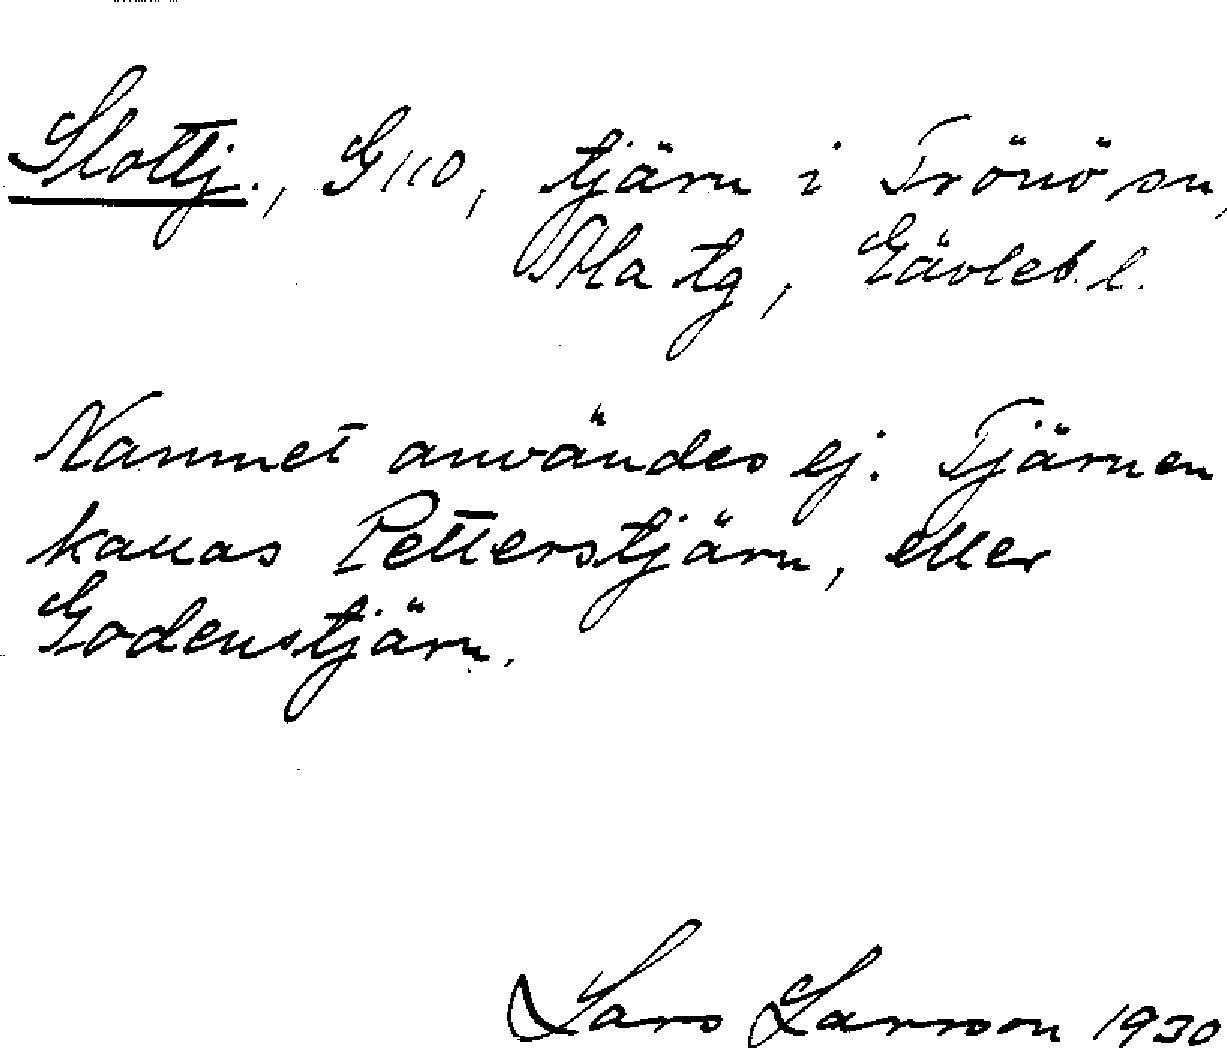 Slottj., GKO, tjärn i Trönö sn,
Ala tg, Gävleb. l.
Namnet användes ej. Tjärnen
kallas Petterstjärn, eller
Godenstjärn.
Lars Larsson 1930